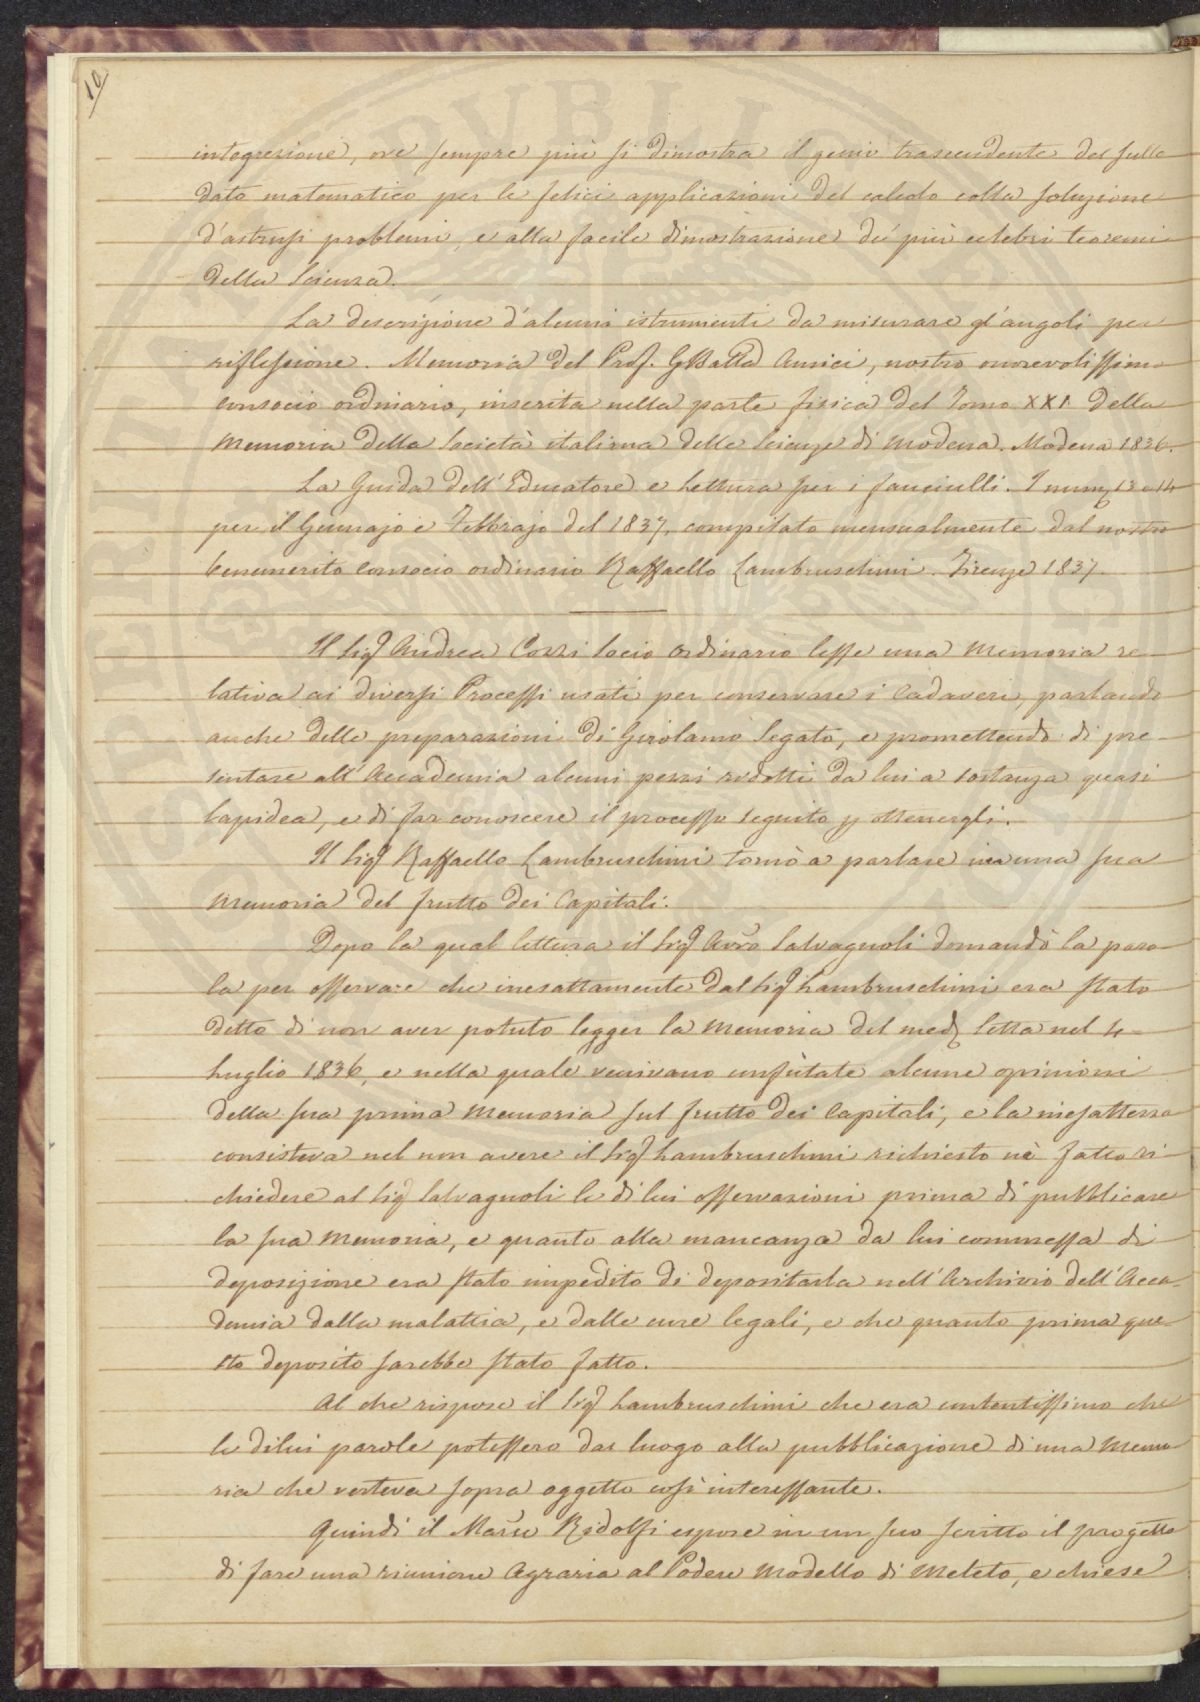 10
integrazione, ove sempre più si dimostra il genio trascendente del sullo
dato matematico per le felici applicazioni del calcolo colla soluzione
d'astrusi problemi, e alla facile dimostrazione de' più celebri teoremi
della Scienza.
La descrizione d'alcuni istrumenti da misurare gl'angoli per
riflessione. Memoria del Prof. GBatta Amici, nostro onorevolissimo
consocio ordinario, inserita nella parte fisica del Tomo XXI della
Memoria della Società italiana delle Scienze di Modena. Modena 1836.
La Guida dell'Educatore e Lettura per i fanciulli. I num 13 e 14
per il Gennajo e Febbrajo del 1837, compilato mensualmente dal nostro
benemerito Consocio ordinario Raffaello Lambruschini. Firenze 1837.
Il Sig Andrea Cozzi Socio ordinario lesse una Memoria re-
lativa ai diversi Processi usati per conservare i Cadaveri, parlando
anche delle preparazioni di Girolamo Segato, e promettendo di pre-
sentare all'Accademia alcuni pezzi ridotti da lui a sostanza quasi
lapidea, e di far conoscere il processo seguito p ottenergli.
Il Sig Raffaello Lambruschini tornò a parlare in una sua
Memoria del frutto dei Capitali.
Dopo la qual lettura il Sig Avvo Salvagnoli domandò la paro-
la per osservare che inesattamente dal Sig Lambruschini era stato
detto di non aver potuto legger la Memoria del med letta nel 4
Luglio 1836, e nella quale venivano confutate alcune opinioni
della sua prima Memoria sul frutto dei Capitali, e la inesattezza
consisteva nel non avere il Sig Lambruschini richiesto nè fatto ri-
chiedere al Sig Salvagnoli le di lui osservazioni prima di pubblicare
la sua Memoria, e quanto alla mancanza da lui commessa di
deposizione era stato impedito di depositarla nell'Archivio dell'Acca-
demia dalla malattia, e dalle cure legali, e che quanto prima que-
sto deposito sarebbe stato fatto.
Al che rispose il Sig Lambruschini che era contentissimo che
le di lui parole potessero dar luogo alla pubblicazione di una Memo-
ria che verteva sopra oggetto così interessante.
Quindi il March Ridolfi espose in un suo scritto il progetto
di fare una riunione Agraria al Podere Modello di Meleto, e chiese